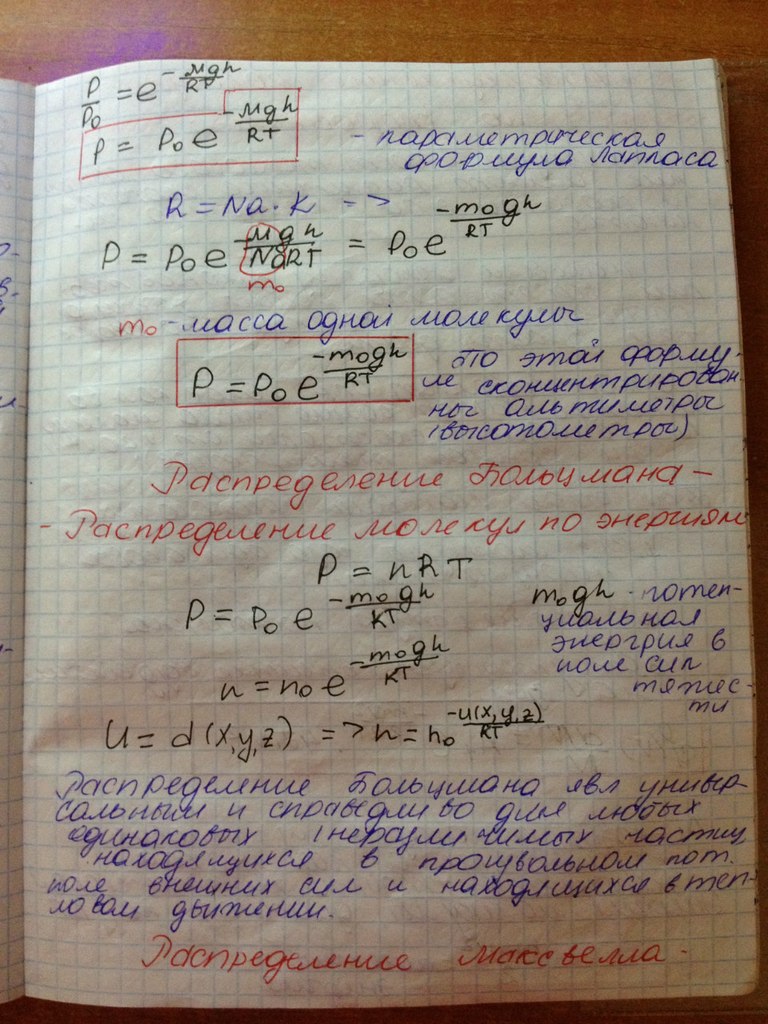 P/P₀ = e^(-Mgh/RT)
P = P₀ e^(-Mgh/RT) - параметрическая
формула Лапласа
R = Na·K =>
P = P₀ e^(-Mgh/NaRT) = P₀ e^(-m₀gh/RT)
m₀
m₀ - масса одной молекулы
P = P₀ e^(-m₀gh/RT)
По этой форму-
ле сконцентрирован-
ны альтиметры
(высотометры)
Распределение Больцмана –
- Распределение молекул по энергиям
P = nRT
P = P₀ e^(-m₀gh/KT)
n = n₀ e^(-m₀gh/KT)
m₀gh - потен-
циальная
энергрия в
поле сил
тяжес-
ти
U = d(x,y,z) => n = n₀^(-U(x,y,z)/RT)
Распределение Больцмана явл универ-
сальным и справедливо для любых
одинаковых (неразличимых частиц
находящихся в произвольном пот.
поле внешних сил и находящихся в теп-
ловом движении.
Распределение Максвелла -